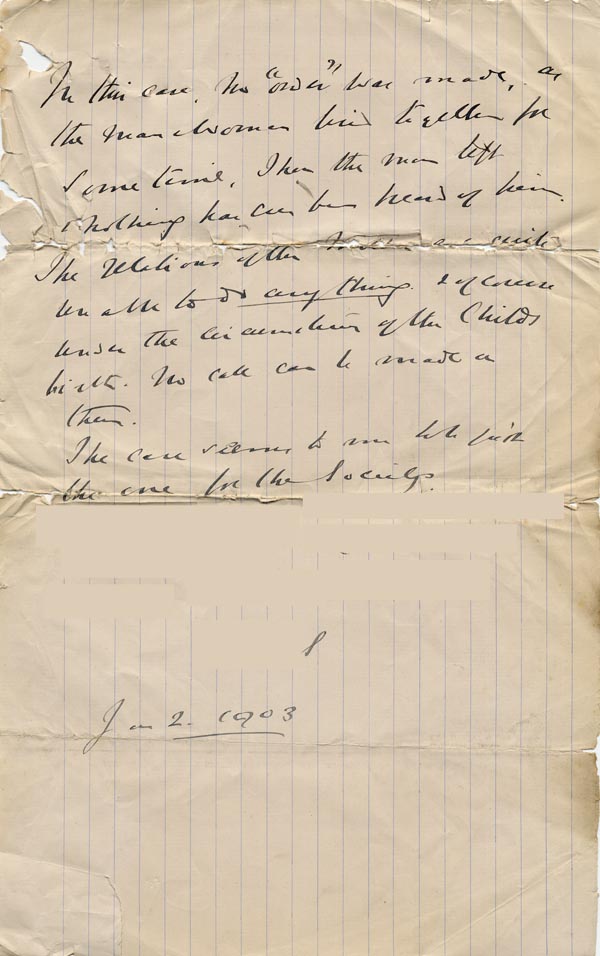 In this case, no "order" was made, as
the man & woman lived together for
some time, then the man left
& nothing has ever been heard of him.
The relations of the mother are quite
unable to do anything. & of course
under the circumstances of the Childs
birth. No call can be made on
them.
The case seems to me to be just
the one for the Society.
Jan 2. 1903